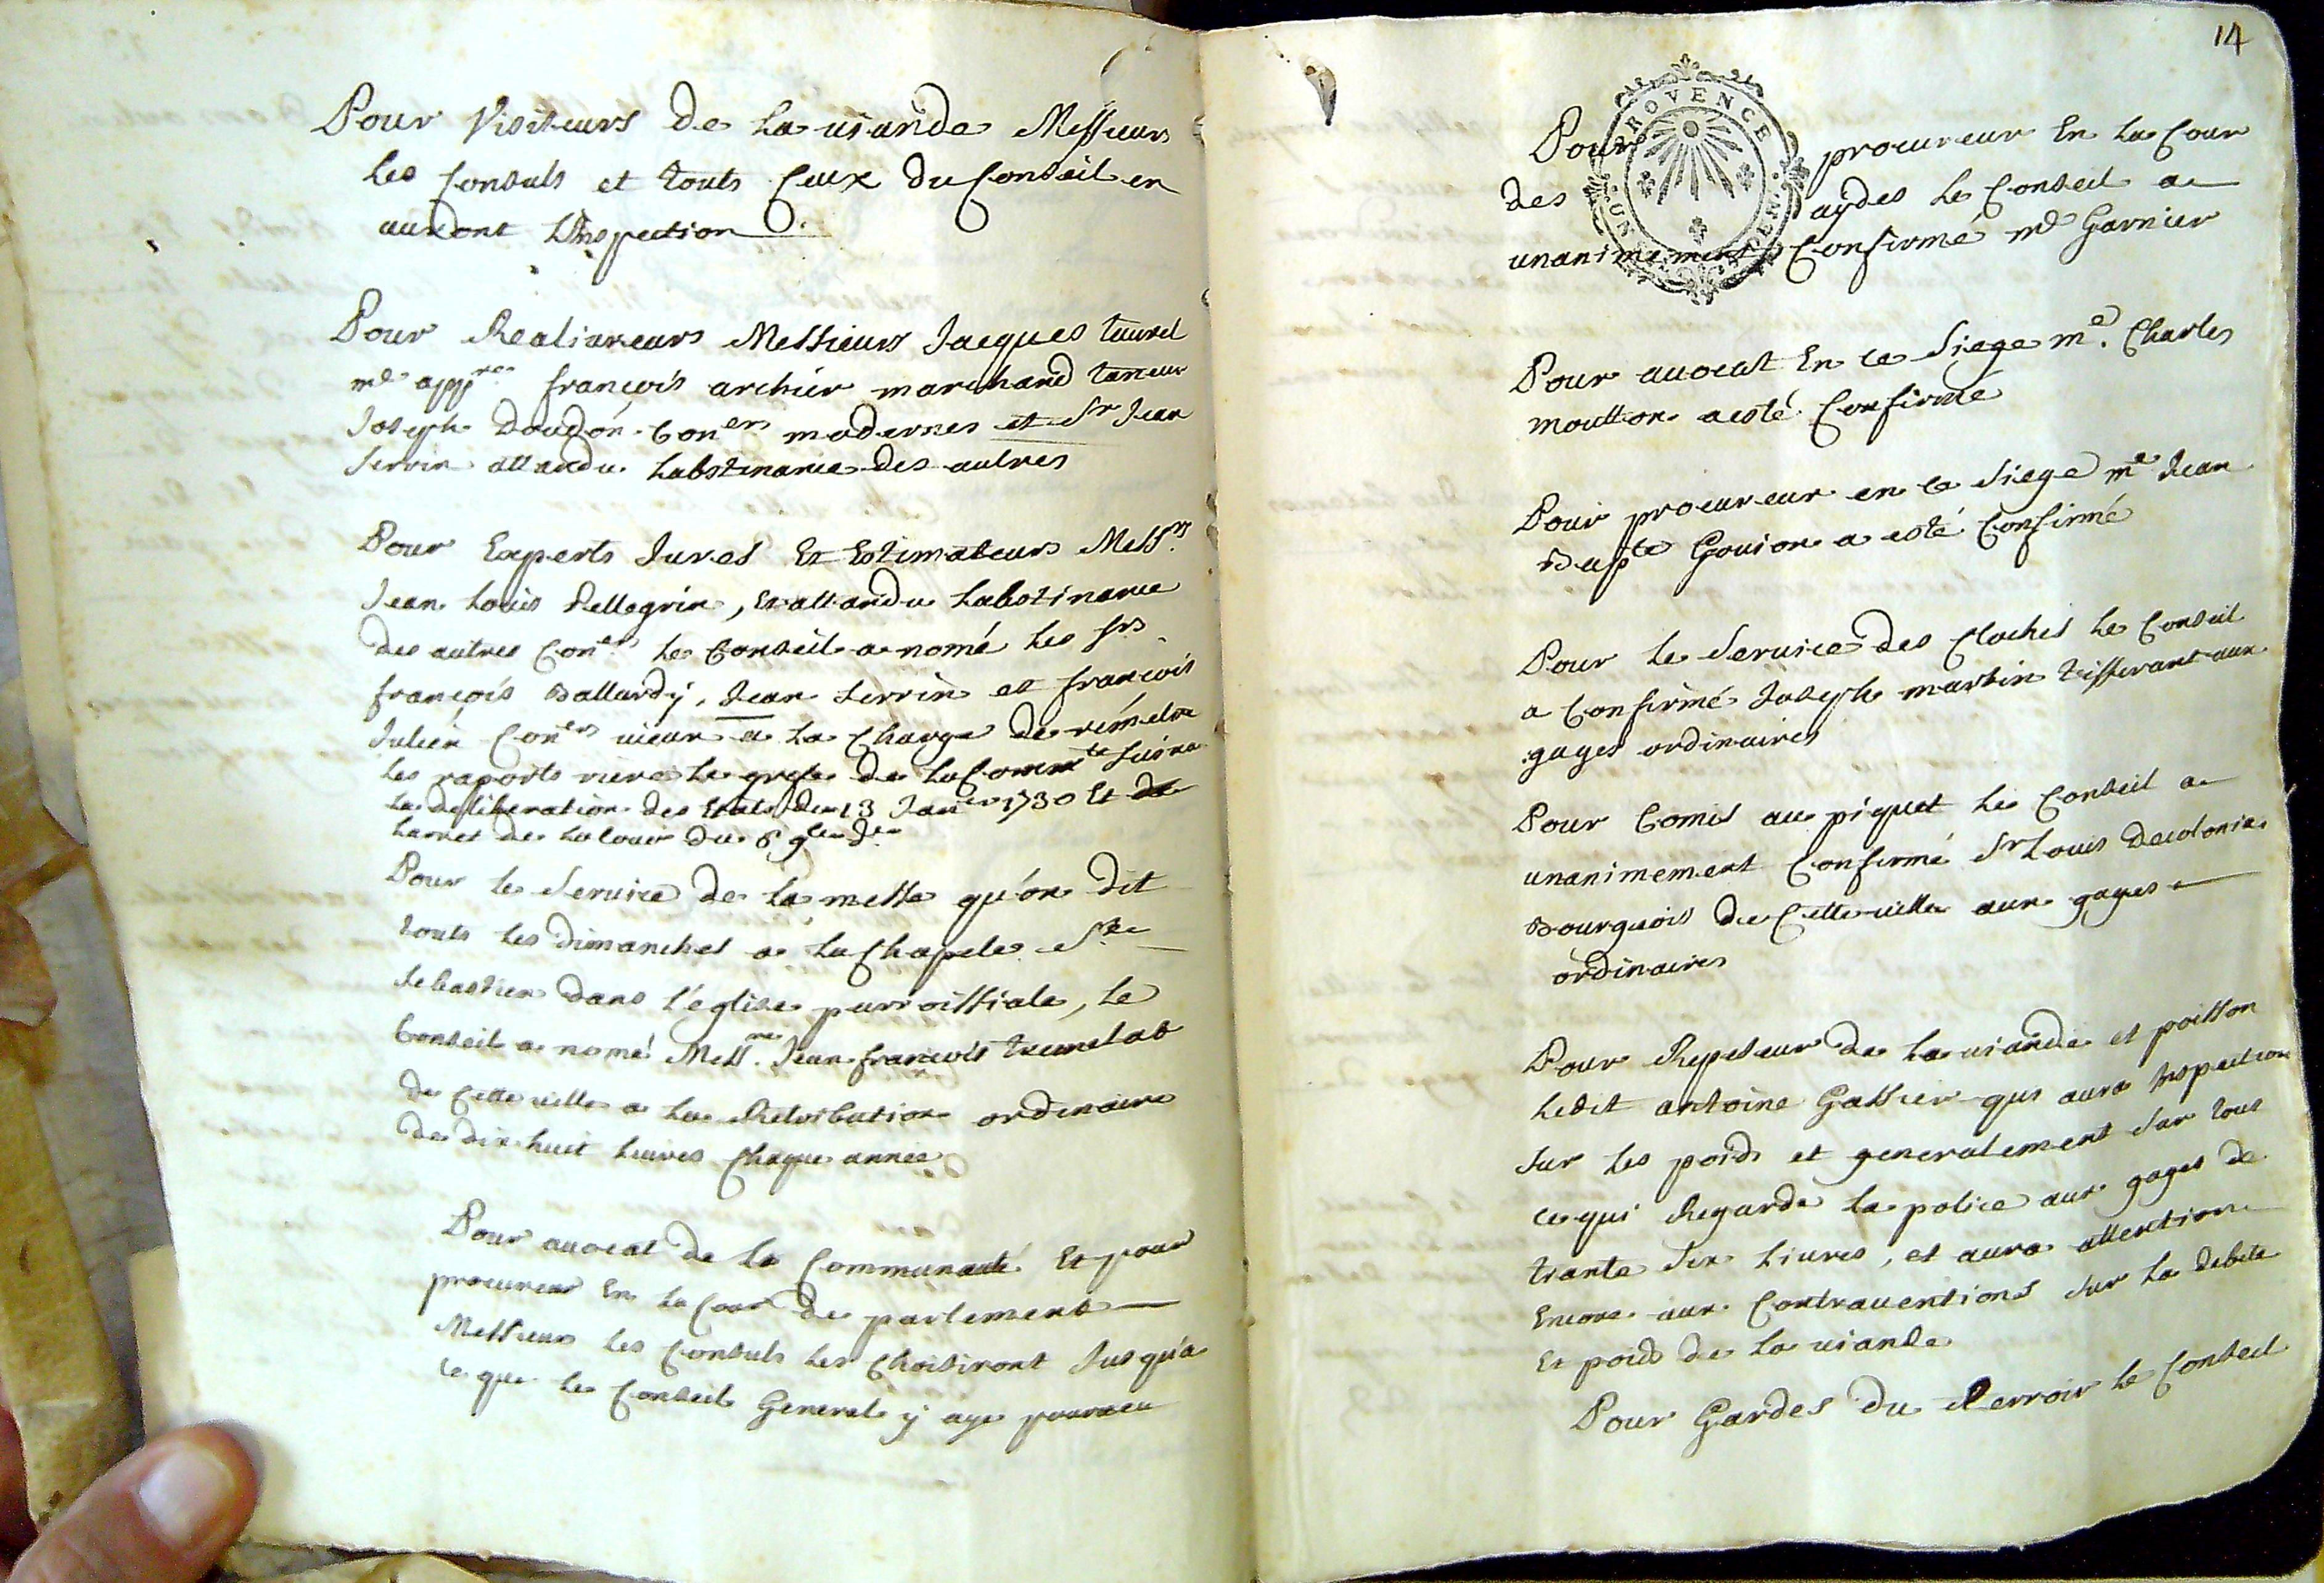 Pour Visiteurs de la uiande Messieurs
les Consuls et touts Ceux du Conseil en
auront L'inspection
Pour Realiureurs Messieurs Jacques taurel
me appre francois archier marchand taneur
Joseph Doudon Coners modernes et Sr Jean
Serrin attandu Labstinance des autres
Pour Experts Jures Et Estimateurs Messrs
Jean Louis Pellegrin, Et attandu Labstinance
des autres Coners le Conseil a nomé les srs
françois Ballardy, Jean Serrin et francois
Julien Coners uieux a la Charge de rémetre
les raports riere le grefe de la Commte Suiua
la deliberation des Etats du 13 Janer 1730 Et de
larret de la Cour du 6
Pour le Seruice de la messe qu'on dit
touts les dimanches a la Chapele St
Sebastien dans l'eglise parroissiale, le
Conseil a nomé Messre Jean francois
de Cette uille a la Retribution ordinaire
de dix huit liures Chaque année
Pour auocat de la Communauté Et pour
procureur En la Cour de parlement
Messieurs les Consuls les Choisiront Jusqu'a
ce que le Conseil General y aye pourueu
14
PROVENCE
Pour procureur En la Cour
des aydes le Conseil a
unanimement Confirmé me Garnier
Pour auocat En ce Siege me. Charles
moutton a esté Confirmé
Pour procureur en ce Siege me Jean
Bapte Gouion a esté Confirmé
Pour le Seruice des Cloches le Conseil
a Confirmé Joseph martin tisserant aux
gages ordinaires
Pour Comis au piquet le Conseil a
unanimement Confirmé Sr Louis Decolonia
Bourgeois de Cette uille aux gages
ordinaires
Pour Repeseur de la uiande et poisson
ledit antoine Gassier qui aura Inspection
Sur les poids et generalement Sur tout
ce qui Regarde la police aux gages de
trante Six liures, et aura attention
Encore aux Contrauentions Sur la debite
Et poids de la uiande
Pour Gardes du terroir le Conseil